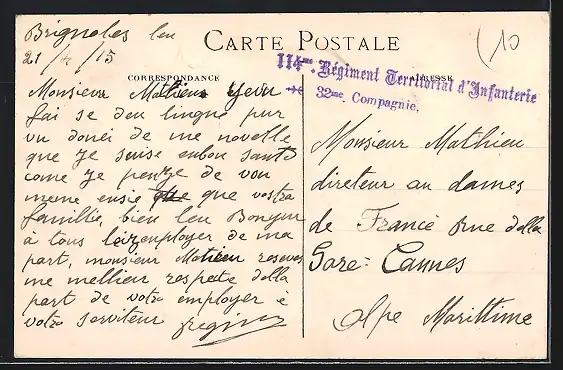 Brignoles leu
21/4/15
CARTE POSTALE
(10
114me Régiment Territorial d'Infanterie
32me Compagnie.
CORRESPONDANCE
ADRESSE
Monsieur Mathieu Je vu
fai se deu lingne pur
vu donei de me novelle
que Je suise enbon santé
come Je penze de vou
meme ensie que vostra
famillie, bien leu Bonjur
à tous employer de ma
part, monsieur Matieu reseves
me mellieur respete dalla
part de votra employer è
votra serviteur
Monsieur Mathieu
direteur au dames
de France Rue dalla
Gare = Cannes
Alpe Marittime